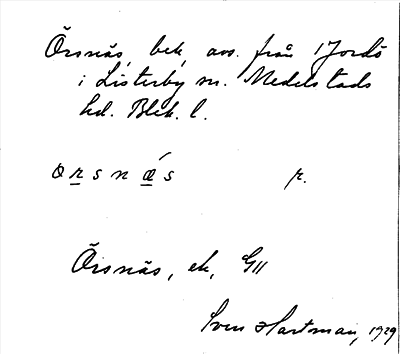 Örsnäs, bek, avs. från 1 Jordö
i Listerby sn. Medelstads
hd. Blek. l.
o r s n ǽ s r.
Örsnäs, ek, G11
Sven Hartman, 1929